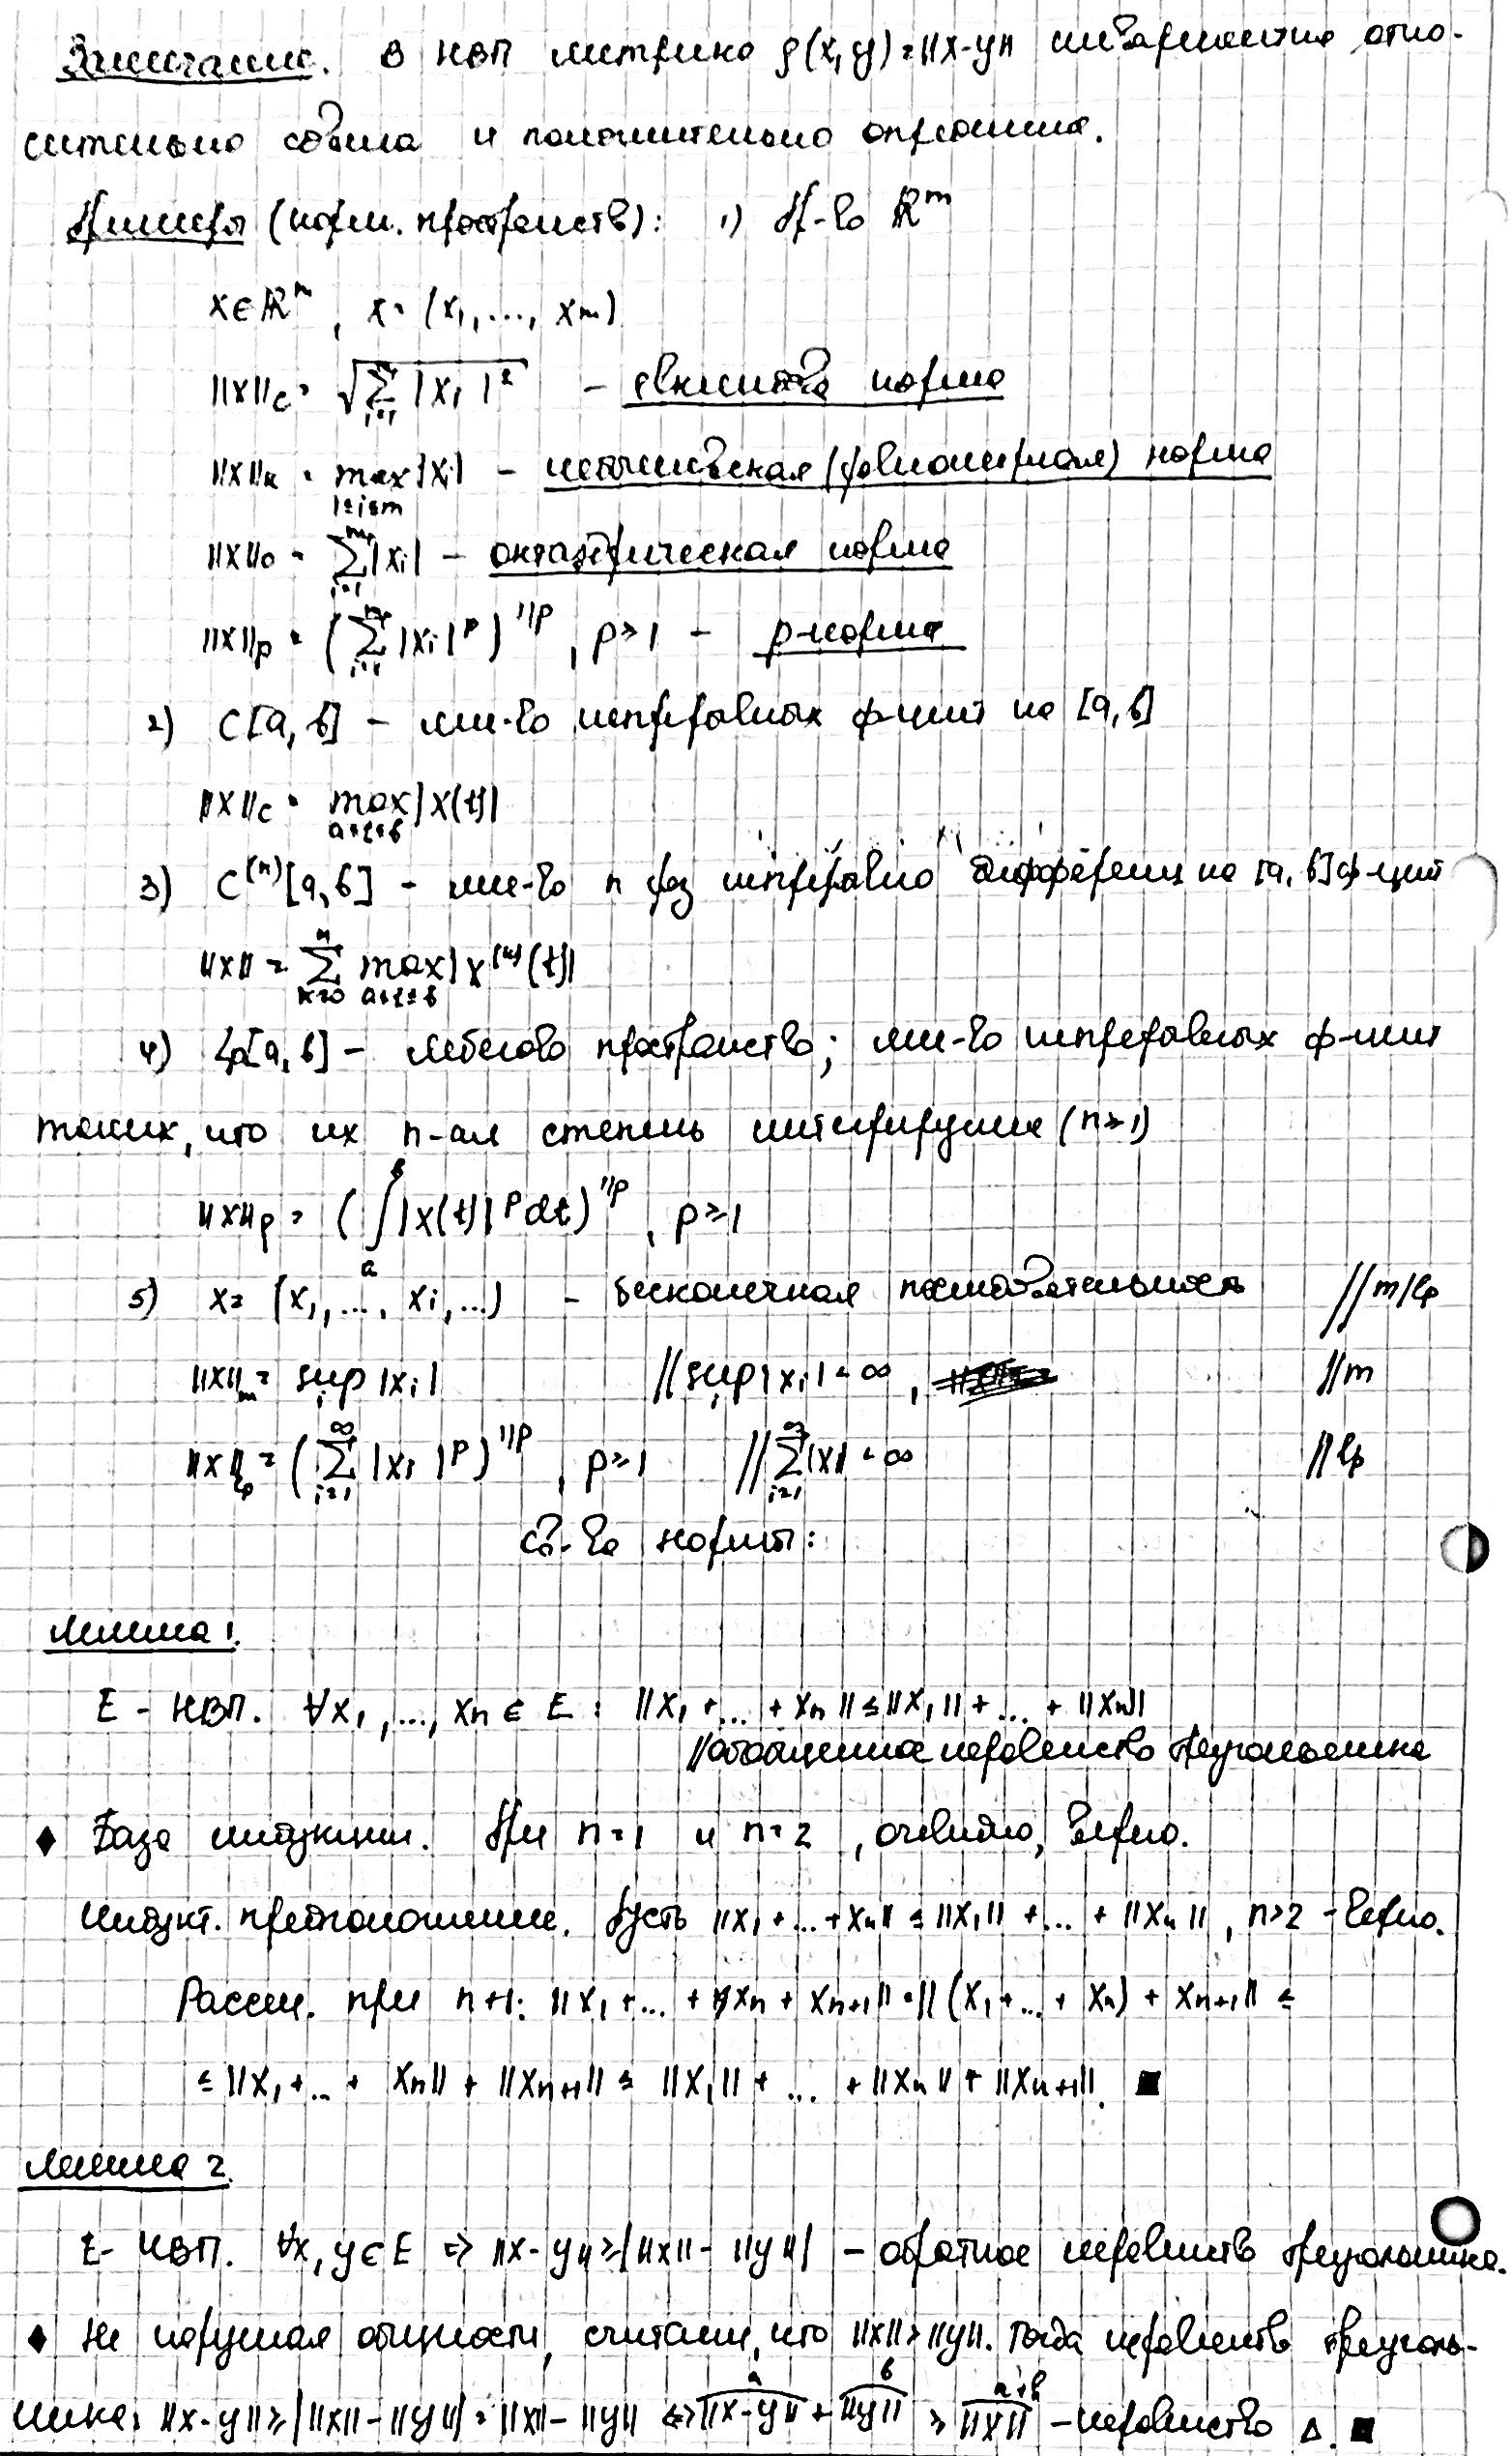 Замечание. В НВП метрика ρ(x,y)=||x-y|| инвариантна отно-
сительно сдвига и положительно определена.
Примеры (норм. пространств): 1) Пр-во ℝᵐ
x∈ℝᵐ, x=(x₁,..., xₘ)
||x||_c = √(∑_{i=1}^{m} |xᵢ|²) - евклидова норма
||x||_k = max_{1≤i≤m} |xᵢ| - кубическая (равномерная) норма
||x||₀ = ∑_{i=1}^{m} |xᵢ| - октаэдрическая норма
||x||_p = (∑_{i=1}^{m} |xᵢ|^p)^{1/p}, p>1 - p-норма
2) C[a,b] - мн-во непрерывных ф-ций на [a,b]
||x||_c = max_{a≤t≤b} |x(t)|
3) C^{(n)}[a,b] - мн-во n раз непрерывно дифференц на [a,b] ф-ций
||x|| = ∑_{k=0}^{n} max_{a≤t≤b} |x^{(k)}(t)|
4) L_p[a,b] - лебегово пространство; мн-во непрерывных ф-ций
таких, что их n-ая степень интегрируема (n≥1)
||x||_p = (∫_a^b |x(t)|^p dt)^{1/p}, p≥1
5) x=(x₁,..., xᵢ,...) - бесконечная последовательность //m/l_p
||x||_m = sup_i |xᵢ| //sup_i |xᵢ|<∞, //m
||x||_{l_p} = (∑_{i=1}^{∞} |xᵢ|^p)^{1/p}, p≥1 //∑_{i=1}^{∞} |x|<∞ //l_p
св-ва нормы:
Лемма 1.
E - НВП. ∀x₁,..., xₙ ∈ E: ||x₁+...+xₙ||≤||x₁||+...+||xₙ||
//обобщенное неравенство треугольника
♦ База индукции. При n=1 и n=2, очевидно, верно.
Индукт. предположение. Пусть ||x₁+...+xₙ||≤||x₁||+...+||xₙ||, n>2 - верно.
Рассм. при n+1: ||x₁+...+xₙ+xₙ₊₁||=||(x₁+...+xₙ)+xₙ₊₁||≤
≤||x₁+...+xₙ||+||xₙ₊₁||≤||x₁||+...+||xₙ||+||xₙ₊₁||. ■
Лемма 2.
E- НВП. ∀x,y∈E => ||x-y||≥|||x||-||y||| - обратное неравенство треугольника.
♦ Не нарушая общности, считаем, что ||x||>||y||. Тогда неравенство треуголь-
ника: ||x-y||≥|||x||-||y|||=||x||-||y|| <=> ||x-y||+||y|| ≥ ||x|| - неравенство Δ. ■